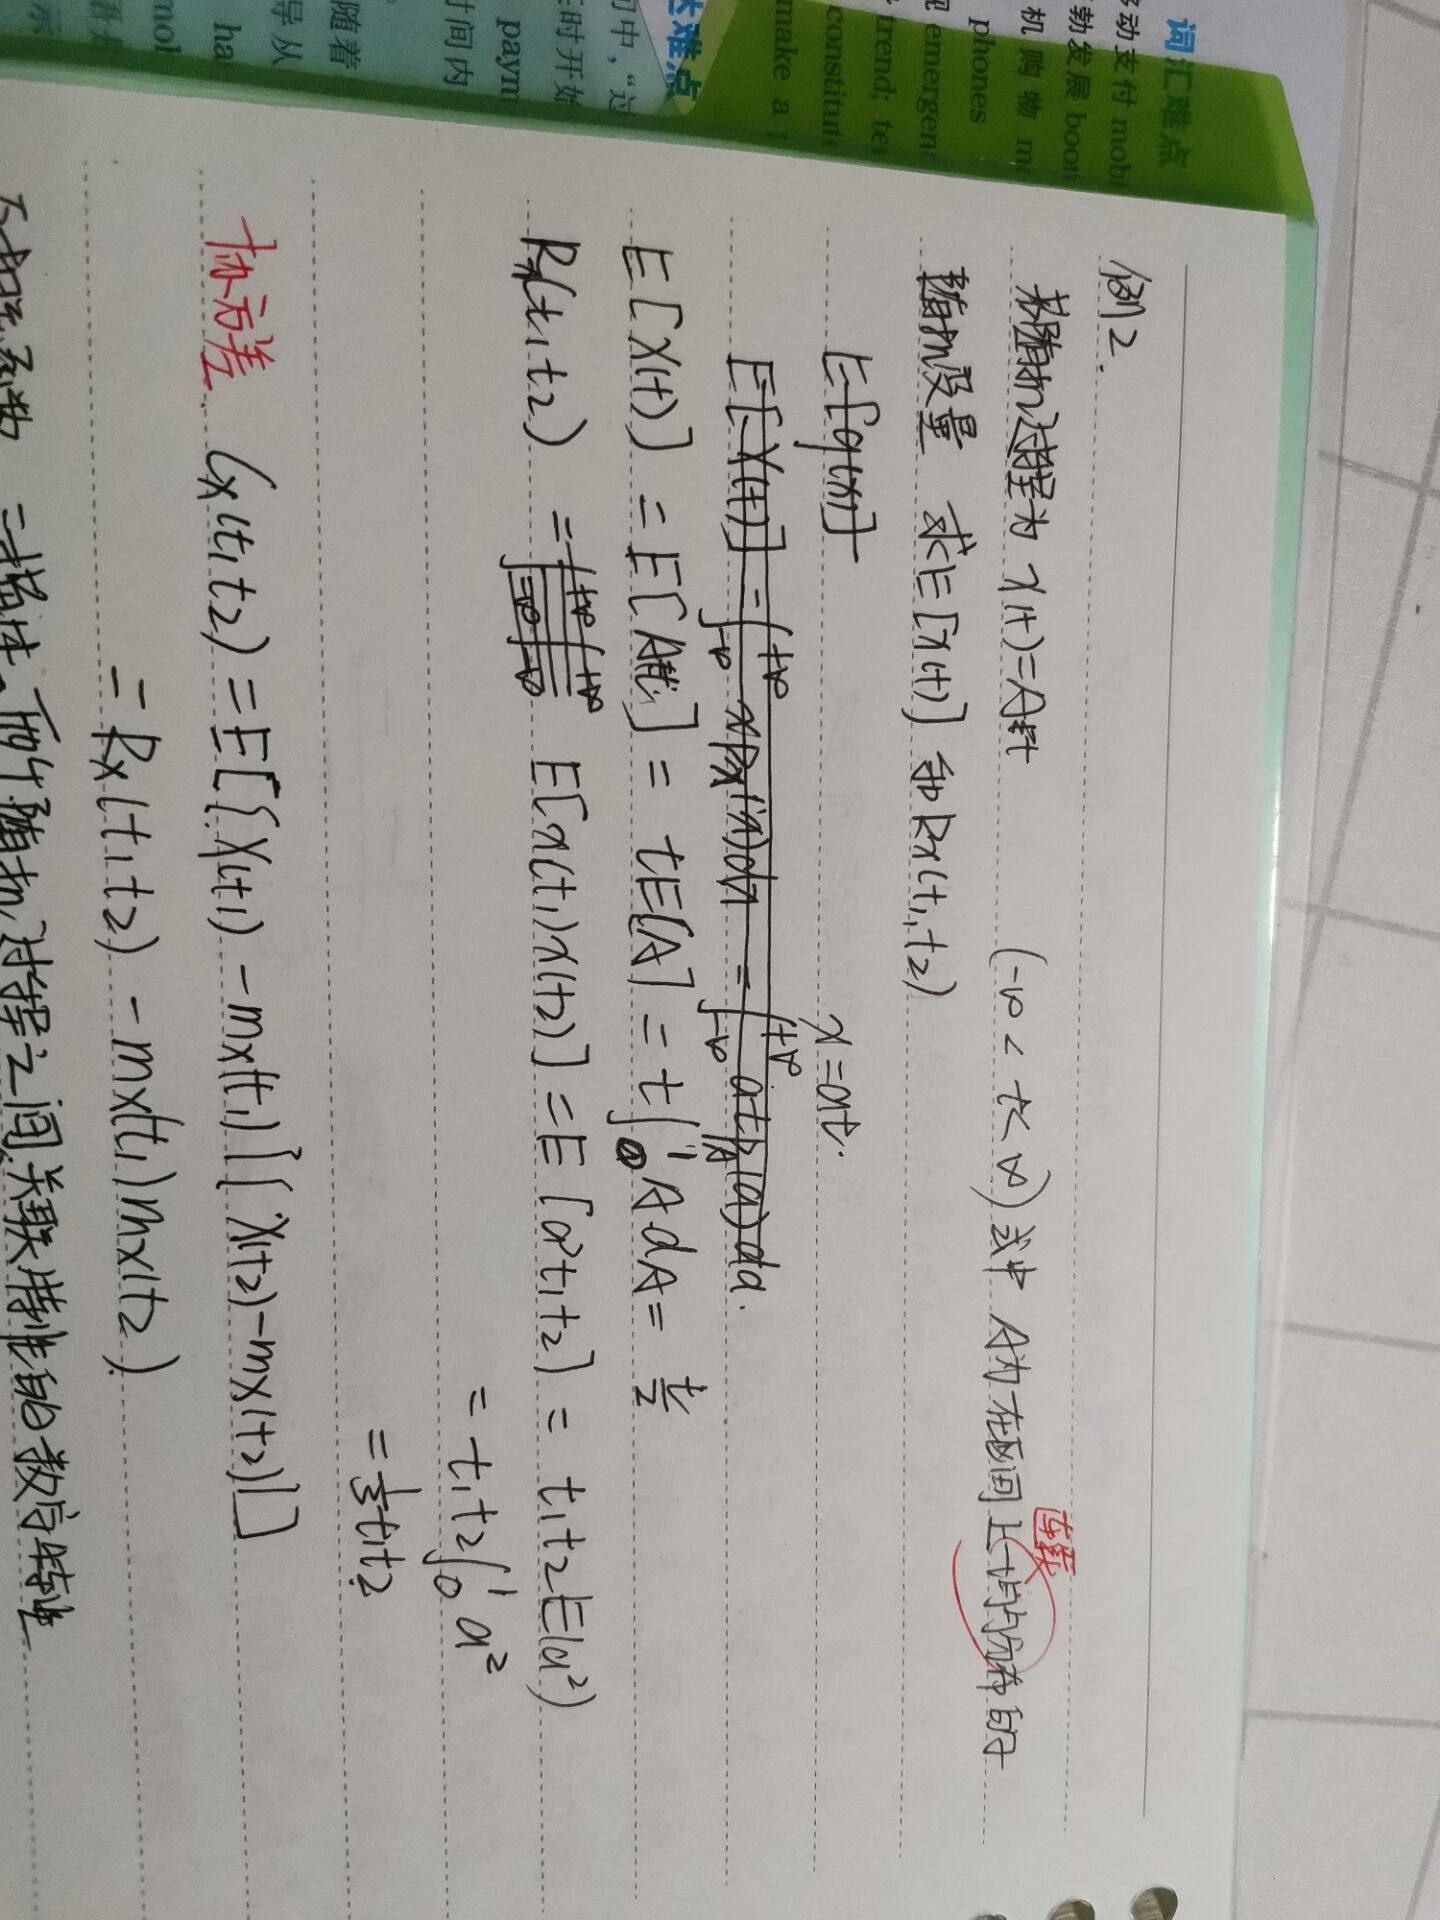 词汇难点
移动支付 mobi
勃发展 boon
机购物 mo
phones
emergen
trend; te
constitut
make a
达难点
中，“过
时开始
paym
时间内
随着
导从
ha
mob
示
例2.
若随机过程为 x(t)=At (-∞ < t < ∞) 式中 A为在区间上均匀分布的
连续
随机变量 求E[x(t)] 和 Rx(t1,t2)
E[g(x)]
x=at.
E[X(t)] = ∫_{-∞}^{+∞} xPx(x)dx = ∫_{-∞}^{+∞} atP_A(a)da.
E[X(t)] = E[At] = tE[A] = t∫_0^1 A dA = t/2
Rx(t1t2) = ∫_{-∞}^{+∞}∫_{-∞}^{+∞} E[x(t1)x(t2)] = E[a²t1t2] = t1t2E(a²)
= t1t2∫_0^1 a²
= 1/3 t1t2
协方差. Cx(t1t2) = E[{X(t1) - mx(t1)][X(t2)-mx(t2)]]
= Rx(t1t2) - mx(t1)mx(t2).
两个随机过程之间关联特性的数字特性